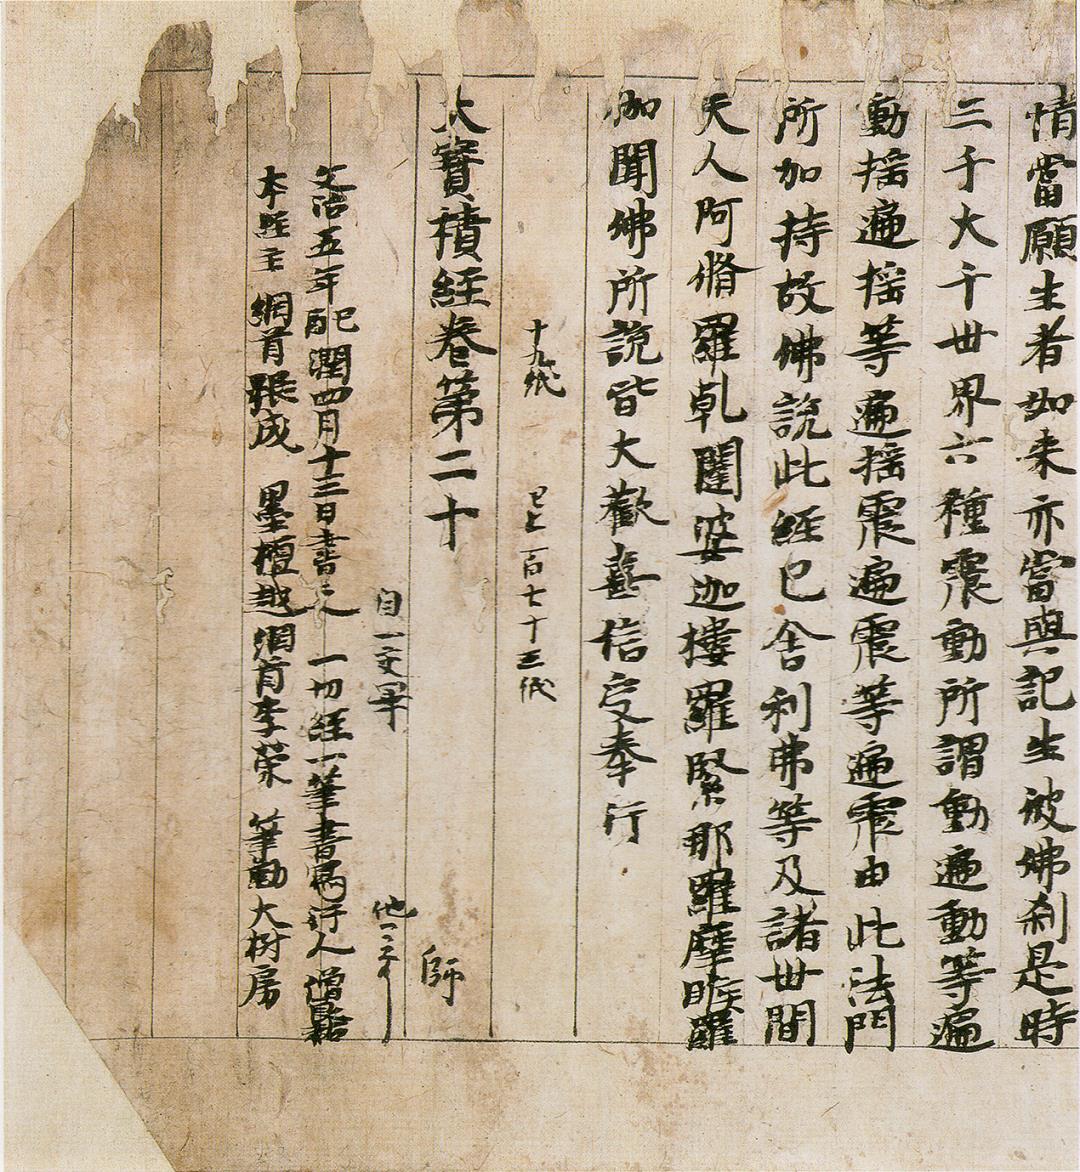 情當願生者如来亦當與記生彼佛刹是時
三千大千世界六種震動所謂動遍動等遍
動揺遍揺等遍揺震遍震等遍震由此法門
所加持故佛說此經已舎利弗等及諸世間
天人阿脩羅乹闥婆迦樓羅緊那羅摩睺羅
伽聞佛所說皆大歡喜信受奉行
十九紙 已上一百七十三紙
大寶積経巻第二十 師
自一交畢 他一交了
文治五年己酉潤四月十三日書之 一切経一筆書寫行人僧
本経主 綱首張成 墨檀越綱首李榮 筆勧大樹房